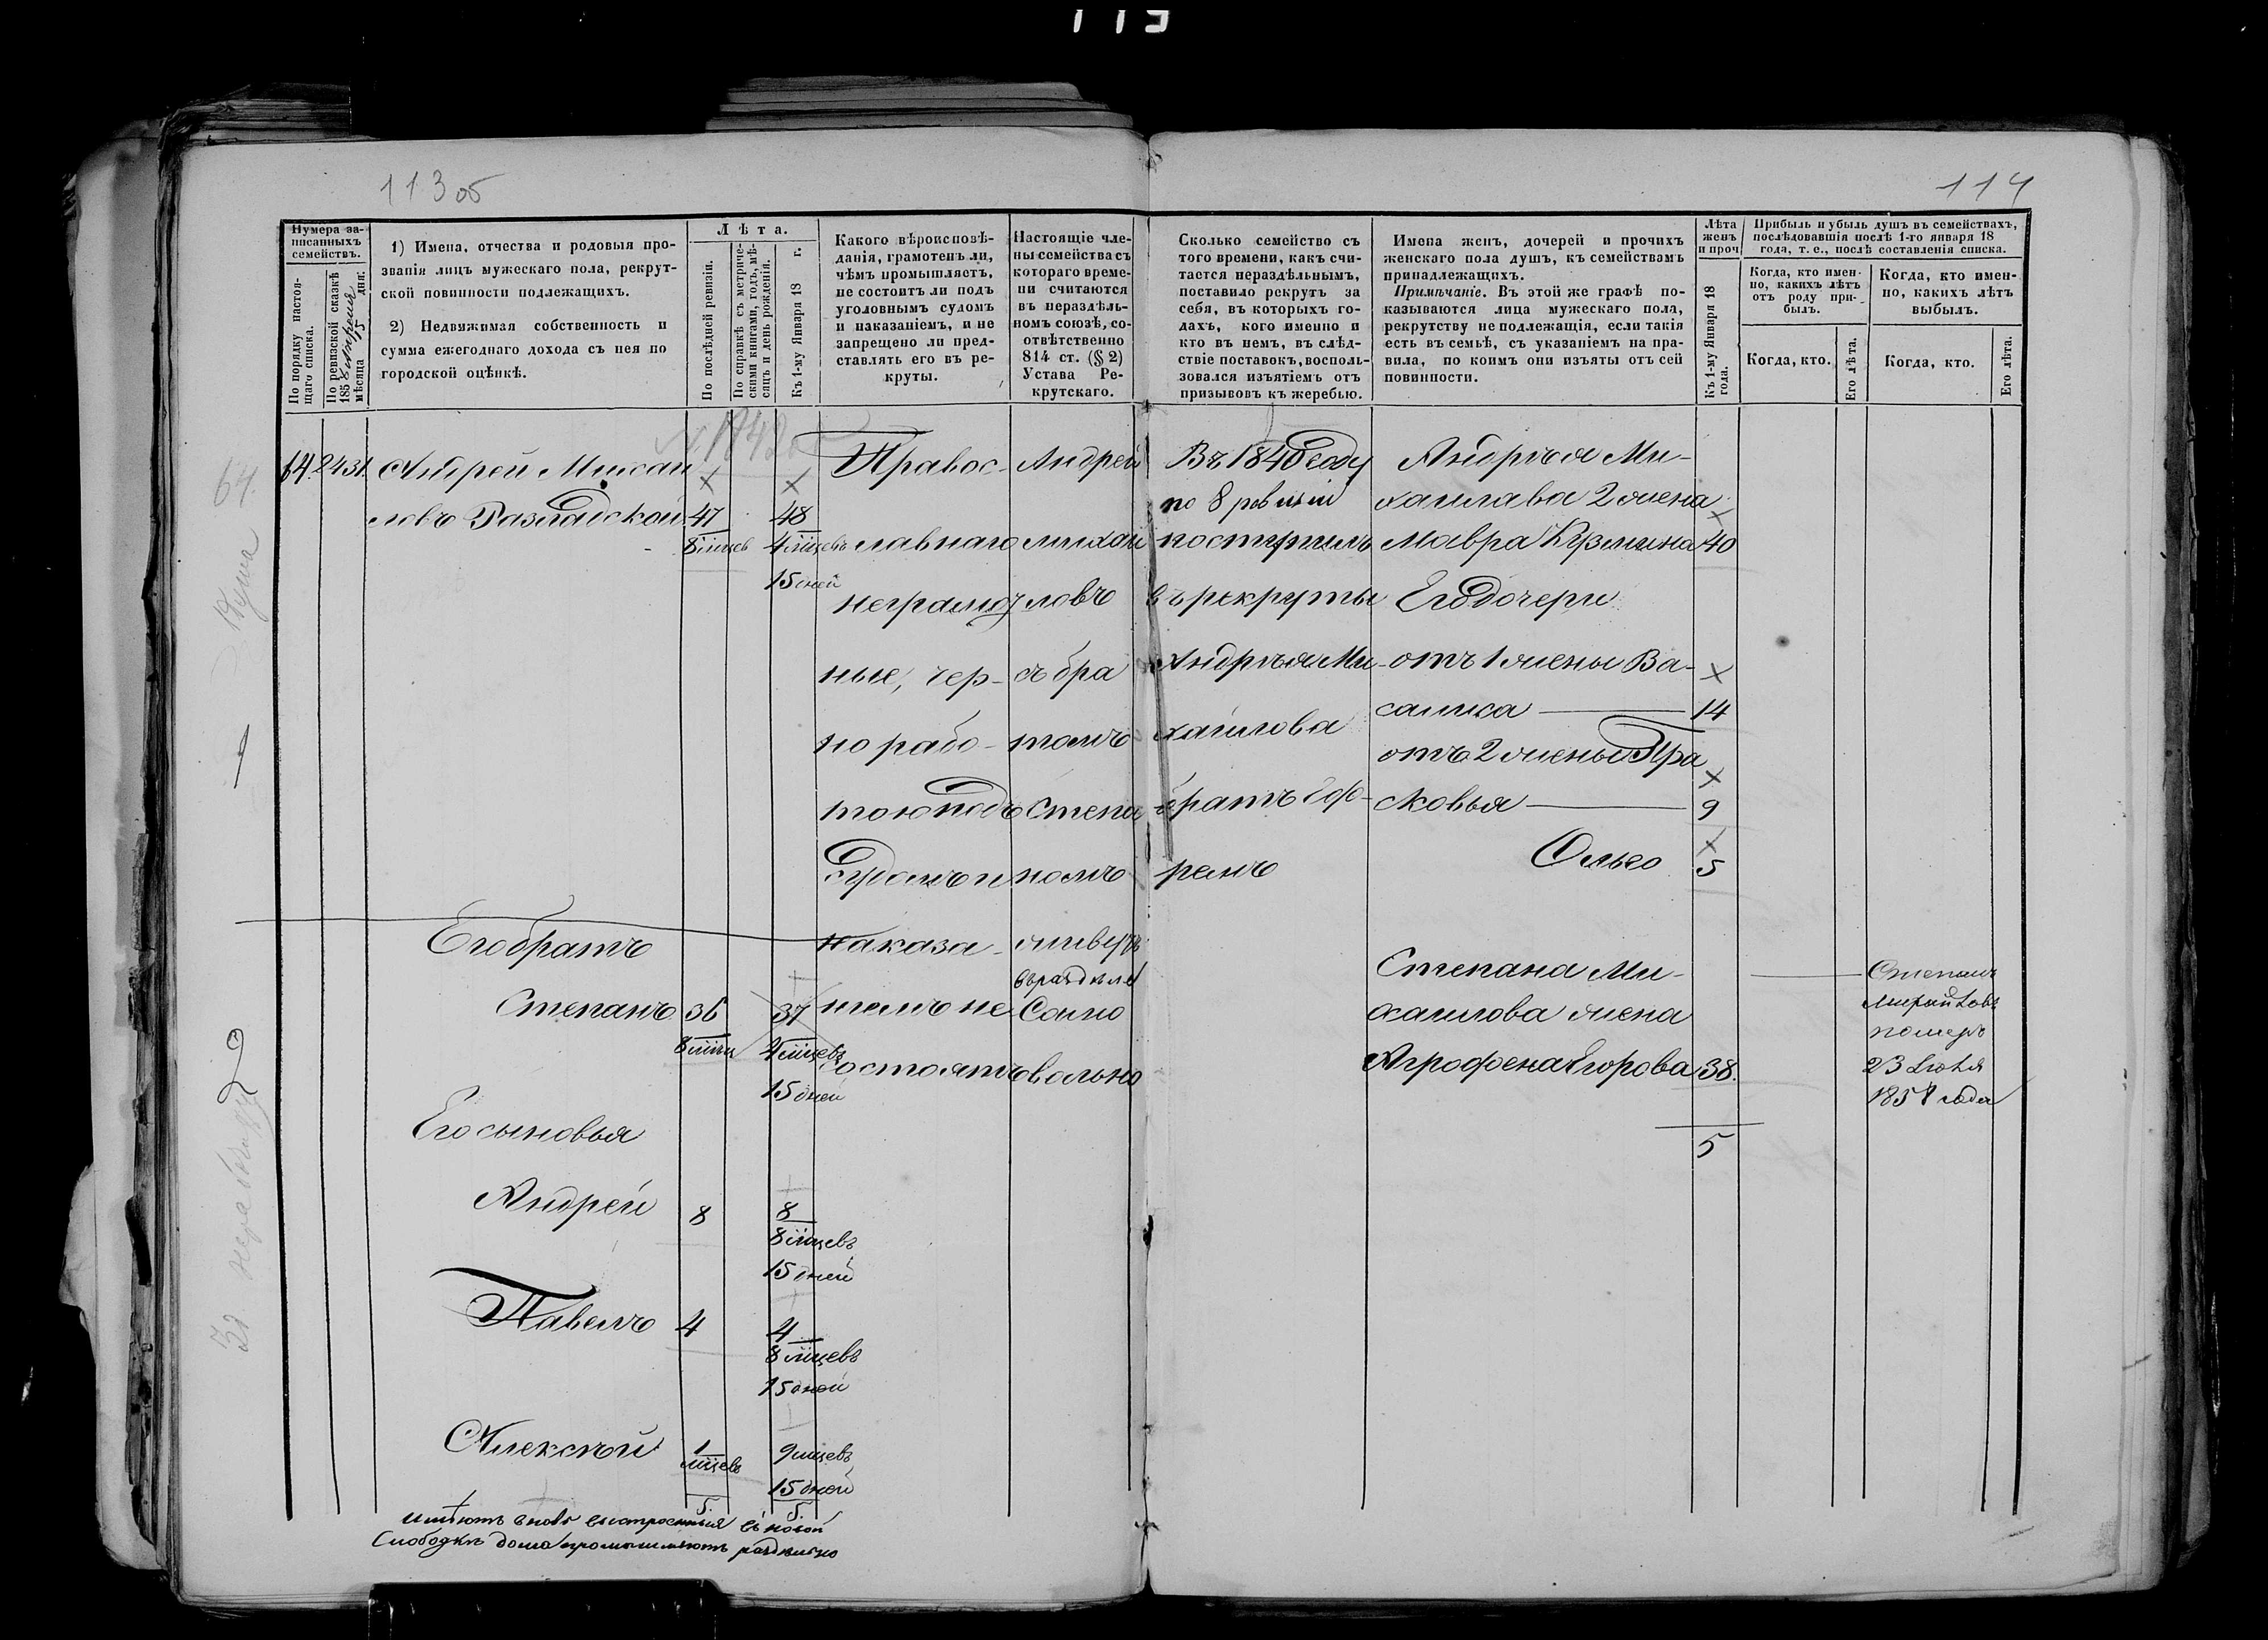 113
113 об
114
Нумера записанныхъ семействъ.
По порядку настоящаго списка.
По ревизской сказкѣ 1858 Апрѣля мѣсяца 15 дня.
1) Имена, отчества и родовыя прозванія лицъ мужескаго пола, рекрутской повинности подлежащихъ.
2) Недвижимая собственность и сумма ежегоднаго дохода съ нея по городской оцѣнкѣ.
Лѣта.
По послѣдней ревизіи.
По справкѣ съ метрическими книгами, годъ, мѣсяцъ и день рожденія.
Къ 1-му Января 18 г.
Какого вѣроисповѣданія, грамотенъ ли, чѣмъ промышляетъ, не состоитъ ли подъ уголовнымъ судомъ и наказаніемъ, и не запрещено ли представлять его въ рекруты.
Настоящіе члены семейства съ котораго времени считаются въ нераздѣльномъ союзѣ, соотвѣтственно 814 ст. (§ 2) Устава Рекрутскаго.
Сколько семейство съ того времени, какъ считается нераздѣльнымъ, поставило рекрутъ за себя, въ которыхъ годахъ, кого именно и кто въ немъ, въ слѣдствіе поставокъ, воспользовался изъятіемъ отъ призывовъ къ жеребью.
Имена женъ, дочерей и прочихъ женскаго пола душъ, къ семействамъ принадлежащихъ.
Примѣчаніе. Въ этой же графѣ показываются лица мужескаго пола, рекрутству не подлежащія, если такія есть въ семьѣ, съ указаніемъ на правила, по коимъ они изъяты отъ сей повинности.
Лѣта женъ и проч
Къ 1-му Января 18 года.
Прибыль и убыль душъ въ семействахъ, послѣдовавшія послѣ 1-го января 18 года, т. е., послѣ составленія списка.
Когда, кто именно, какихъ лѣтъ отъ роду прибылъ.
Когда, кто именно, какихъ лѣтъ выбылъ.
Когда, кто.
Его лѣта.
Когда, кто.
Его лѣта.
64.
64. 2431.
Андрей Михаи
ловъ
47
8 мцев
48
4 мцевъ
15 дней
Его братъ
Степанъ 36
8 мцев
37
4 мцевъ
15 дней
Его сыновья
Андрей 8
8
8 мцевъ
15 дней
Павелъ 4
4
8 мцевъ
15 дней
Алексѣй 1
мцевъ
9 мцевъ
15 дней
5. 5.
Имѣютъ вновь выстроенныя въ новой
Слободкѣ дома промышляютъ раздѣльно
Правос-
лавнаго
неграмот
ные, чер-
но рабо-
тою подъ
Судомъ и
наказа-
ніемъ не
состоятъ
Андрей
Михаи
ловъ
съ бра
томъ
Степа
номъ
живутъ
въ раздѣле
Самo
вольно
Въ 1840 году
по 8 ревизіи
поступилъ
въ рекруты
Андрѣя Ми-
хаилова
братъ
ремъ
Андрѣя Ми-
хаилова 2 жена
Мавра Кузмина 40
Его дочери
отъ 1 жены Ва-
салиса 14
отъ 2 жены Пра
сковья 9
Ольга 5
Степана Ми-
хаилова жена
Агрофена Егорова 38.
5
Степанъ
Михайловъ
померъ
23 Іюля
1858 года